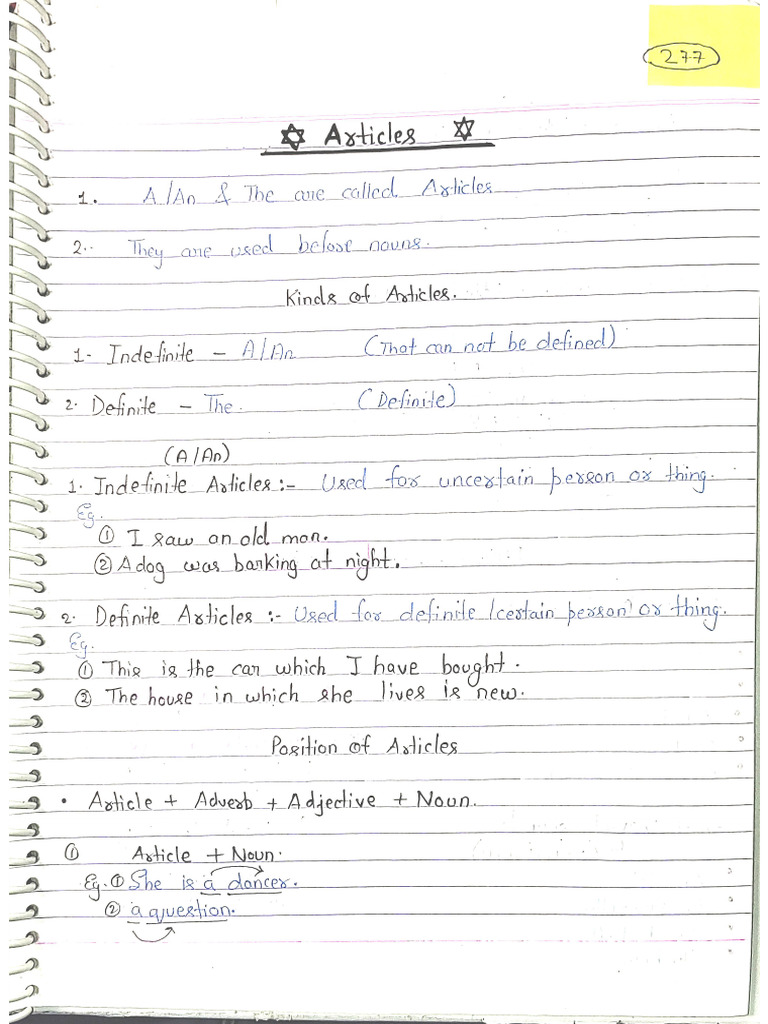 277
✡ Articles ✡
1. A/An & The are called Articles
2.. They are used before nouns.
Kinds of Articles.
1- Indefinite – A/An (That can not be defined)
2. Definite – The. (Definite)
(A/An)
1. Indefinite Articles :- Used for uncertain person or thing.
Eg.
① I saw an old man.
② A dog was barking at night.
2. Definite Articles :- Used for definite/certain person or thing.
Eg.
① This is the car which I have bought.
② The house in which she lives is new.
Position of Articles
• Article + Adverb + Adjective + Noun.
① Article + Noun.
Eg. ① She is a dancer.
② a question.